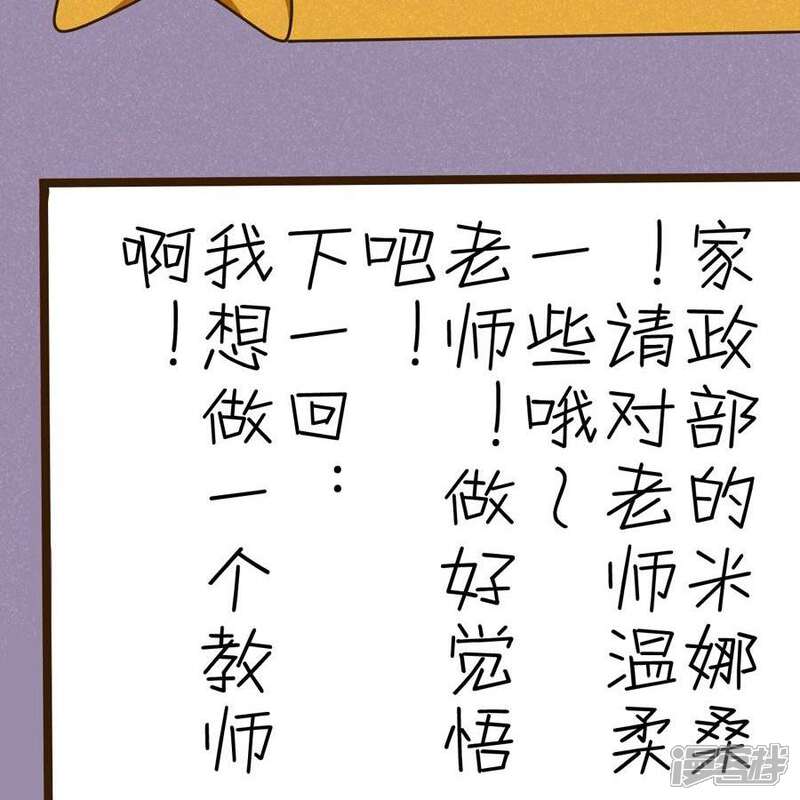 家政部的米娜桑
！请对老师温柔
一些哦～
老师！做好觉悟
吧！
下一回：
我想做一个教师
啊！
漫客栈